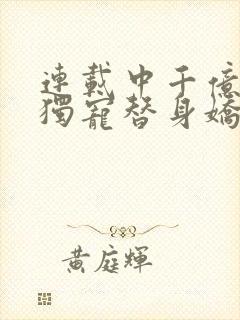 連載中千億
獨寵替身嬌
黃庭輝